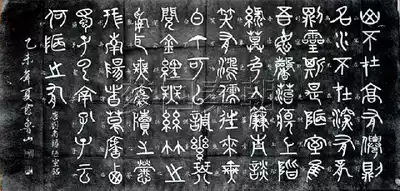 山不在高有僊則
名水不在深有龍
則靈斯是陋室惟
吾德馨苔痕上階
綠草色入簾青談
笑有鴻儒往來無
白丁可以調素琴
閱金經無絲竹之
亂耳無案牘之勞
形南陽諸葛廬西
蜀子雲亭孔子云
何陋之有
劉禹錫陋室銘
乙未年夏